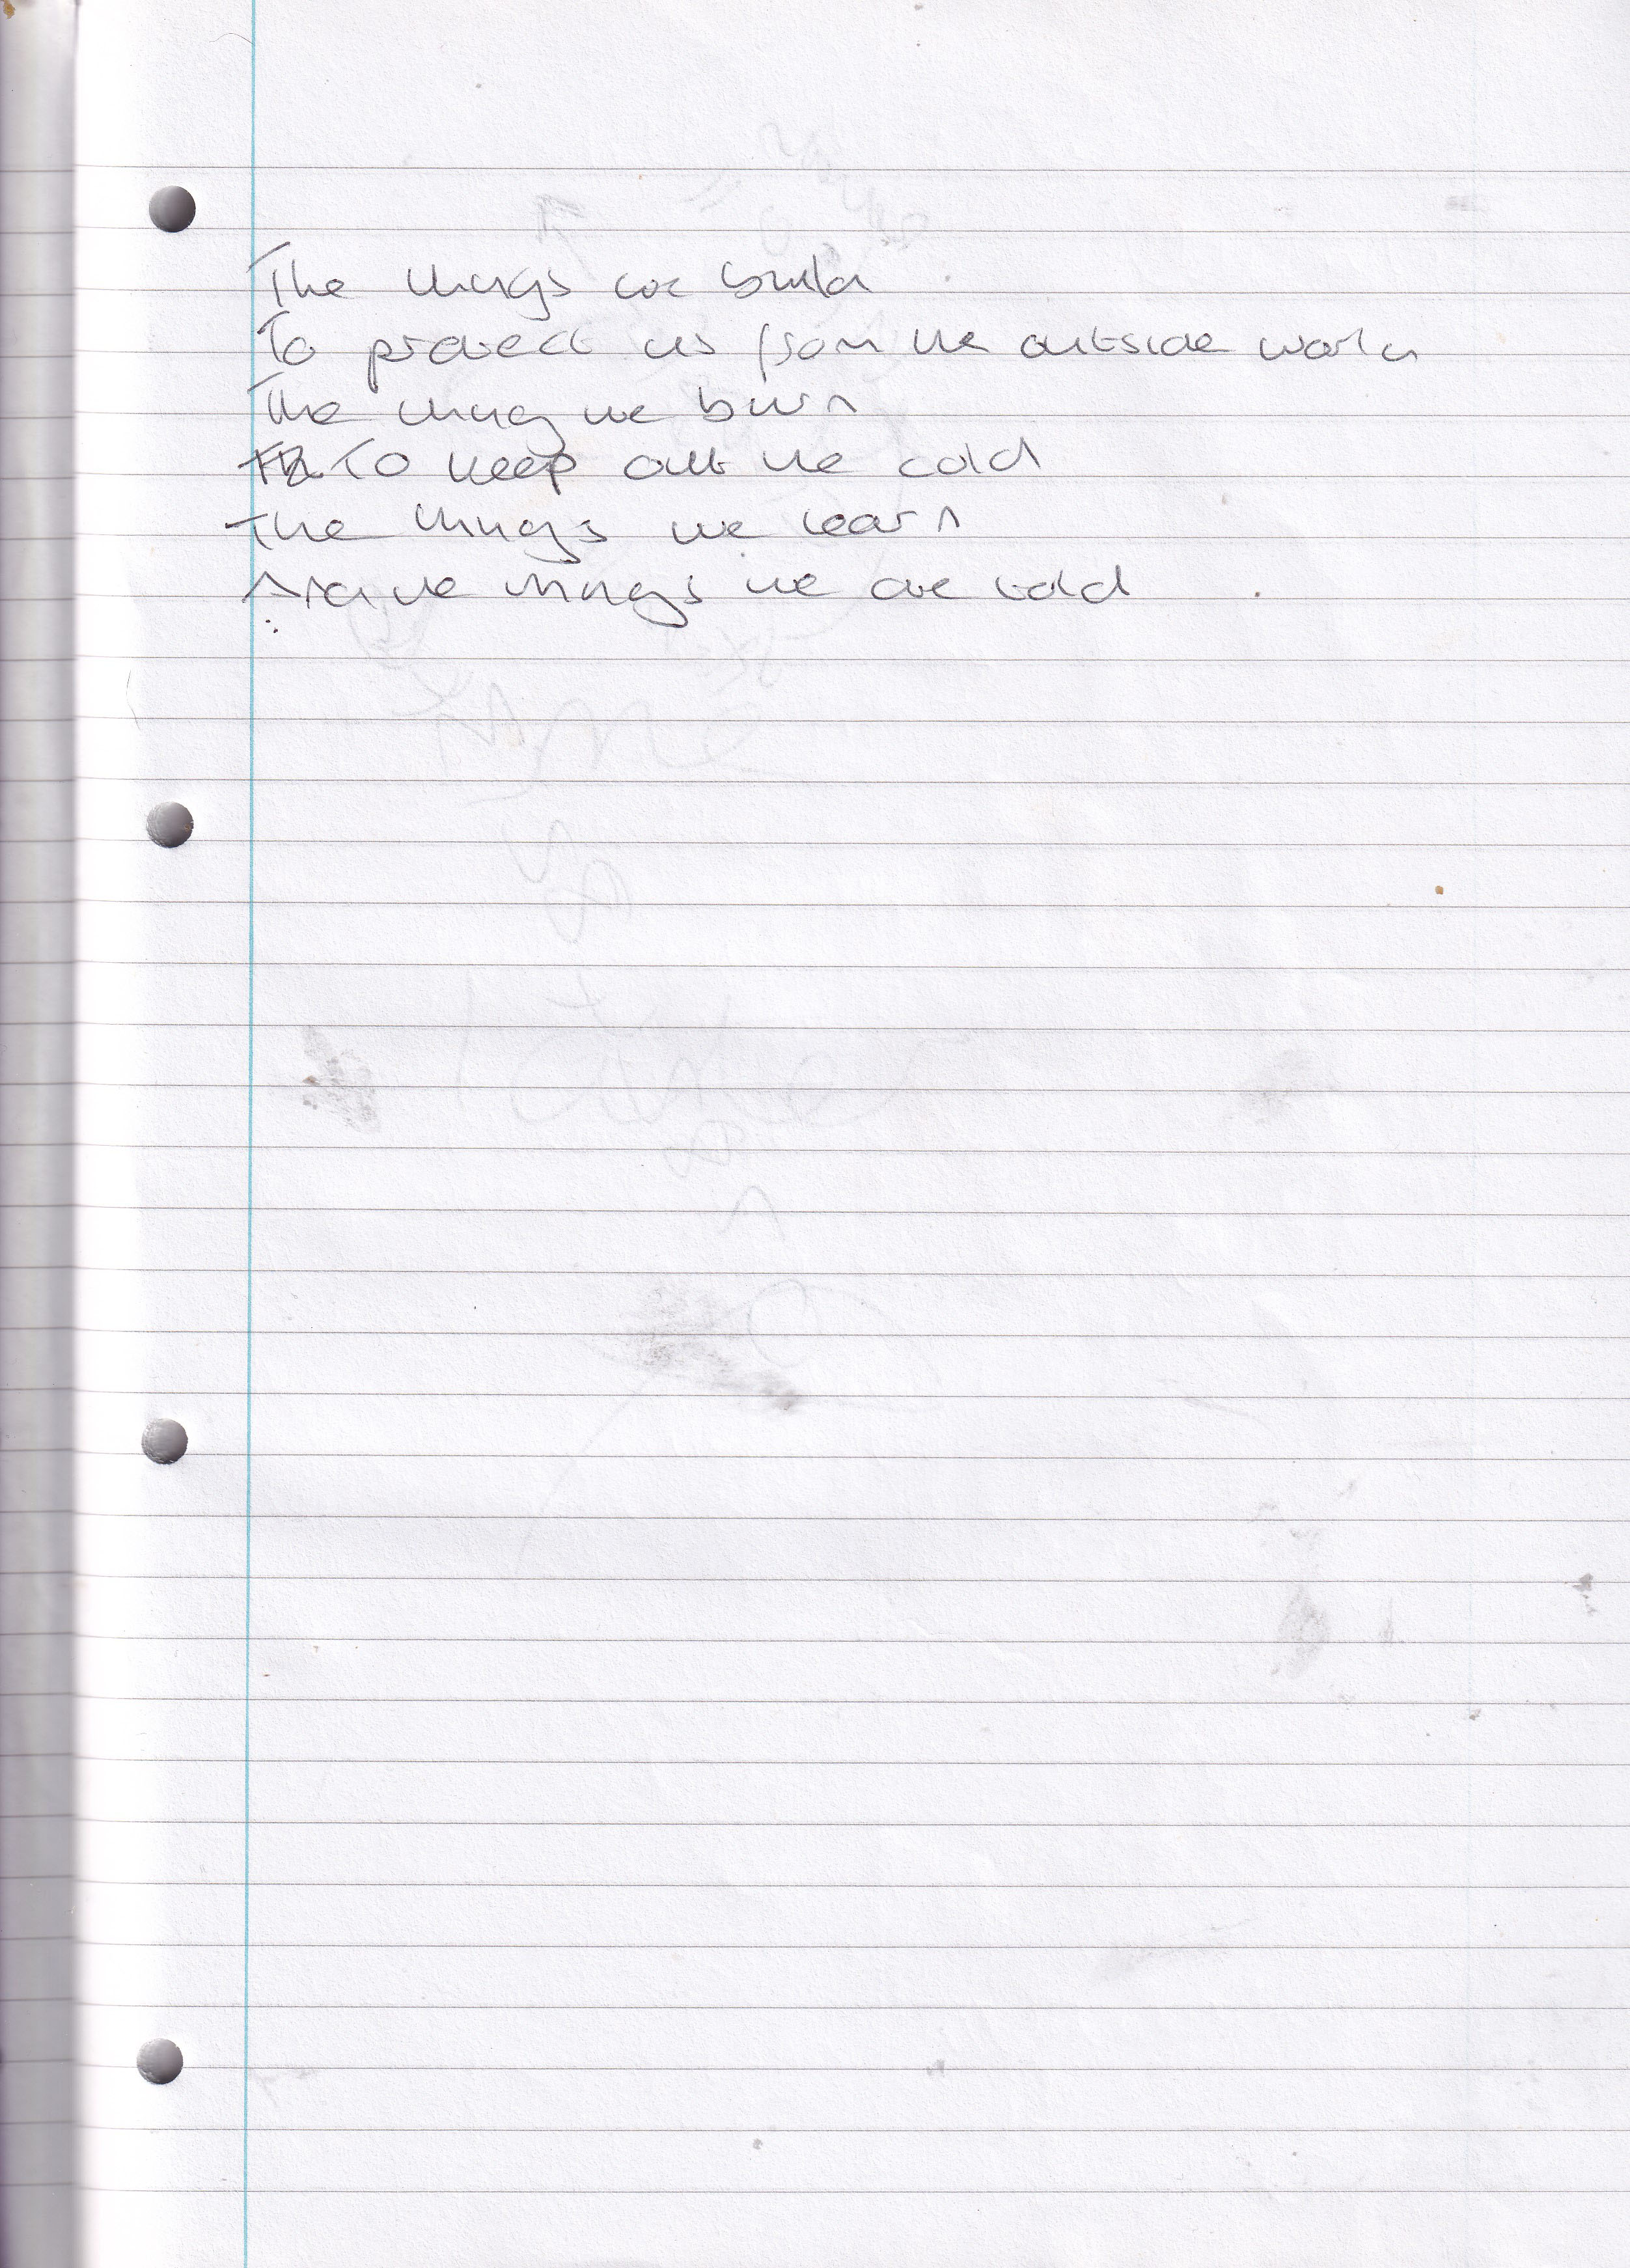 The things we build
To protect us from the outside world
The thing we burn
To keep out the cold
The things we learn
And the things we are told